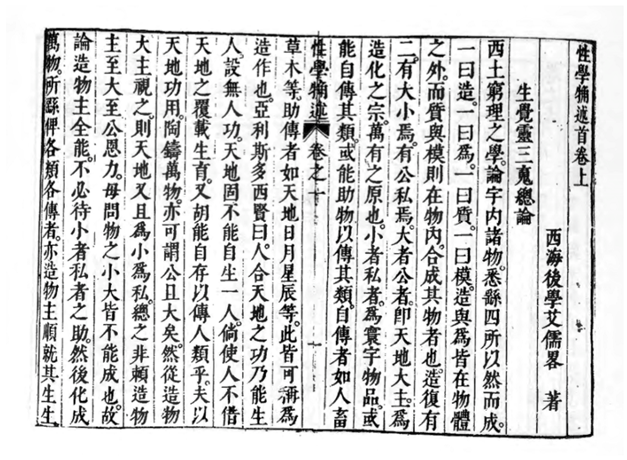 性學觕述首卷上
西海後學艾儒畧 著
生覺靈三䰟總論
西土窮理之學。論宇內諸物。悉繇四所以然而成。
一曰造。一曰爲。一曰質。一曰模。造與爲皆在物體
之外。而質與模則在物內。合成其物者也。造復有
二。有大小焉。有公私焉。大者公者。卽天地大主。爲
造化之宗。萬有之原也。小者私者。爲寰宇物品。或
能自傳其類。或能助物以傳其類。自傳者如人畜
性學觕述 卷之一 一
草木等。助傳者如天地日月星辰等。此皆可謂爲
造作也。亞利斯多西賢曰。人合天地之功乃能生
人。設無人功。天地固不能自生一人。倘使人不借
天地之覆載生育。又胡能自存以傳人類乎。夫以
天地功用。陶鑄萬物。亦可謂公且大矣。然從造物
大主視之。則天地又且爲小爲私。總之非頼造物
主至大至公恩力。毋問物之小大皆不能成也。故
論造物主全能。不必待小者私者之助。然後化成
萬物。所繇俾各類各傳者。亦造物主順就其生生